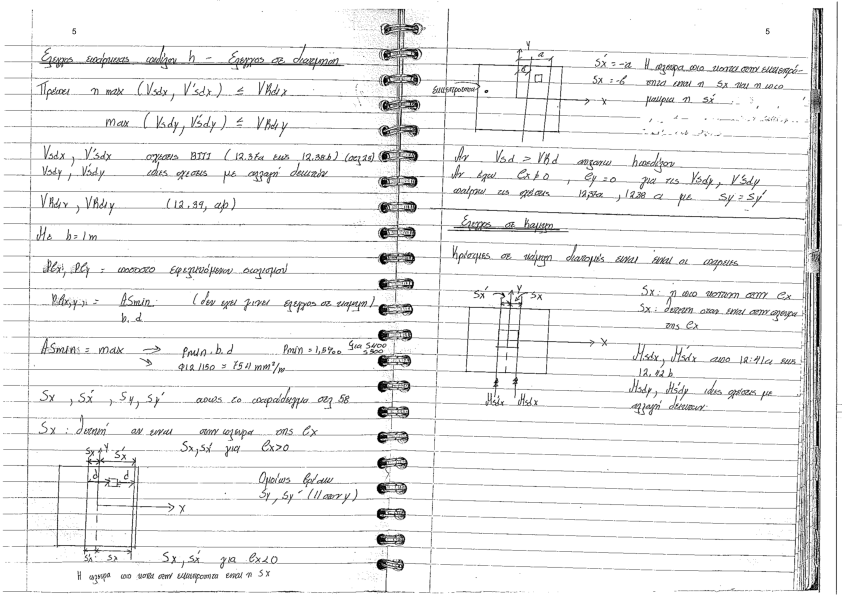 5
Έλεγχος επάρκειας πεδίλου h – Έλεγχος σε διάτμηση
Πρέπει η max (Vsdx, V'sdx) ≤ VRd1x
max (Vsdy, V'sdy) ≤ VRd1y
Vsdx, V'sdx σχέσεις (12.37α έως 12.38b) (σελ 28)
Vsdy, V'sdy ίδιες σχέσεις με αλλαγή δεικτών
VRd1x, VRd1y (12.39, α,b)
Με b=1m
= ποσοστό εφελκυόμενου οπλισμού
= ASmin / b.d (δεν έχει γίνει έλεγχος σε κάμψη)
ASmin = max → ρmin.b.d ρmin = 1,5‰ για S400 S500
Φ12/150 = 754 mm²/m
Sx, Sx', Sy, Sy' όπως το παράδειγμα σελ 58
Sx : θετική αν είναι στην πλευρά της ex
Sx, Sx' για ex>0
Sx Y Sx'
d d
Ομοίως βρίσκω
Sy, Sy' (// στην y)
X
Sx' Sx
Sx, Sx' για ex<0
Η πλευρά πιο κοντά στην εκκεντρότητα είναι η Sx
5
Y
a
a
εκκεντρότητα
X
Sx' = -a Η πλευρά πιο κοντά στην εκκεντρό-
Sx = -b τητα είναι η Sx και η πιο
μακριά η Sx'
Αν Vsd > VRd αλλάζω h πεδίλου
Αν έχω ex≠0, ey=0 για τις Vsdy, V'sdy
παίρνω τις σχέσεις 12.37α, 12.38 α με Sy = Sy'
Έλεγχος σε Κάμψη
Κρίσιμες σε κάμψη διατομές είναι είναι οι παρειές
Sx' Y Sx
X
M'sdx Msdx
Sx : η πιο κοντινή στην ex
Sx : θετική όταν είναι στην πλευρά
της ex
Msdx, M'sdx από 12.41α έως
12.42b
Msdy, M'sdy ίδιες σχέσεις με
αλλαγή δεικτών